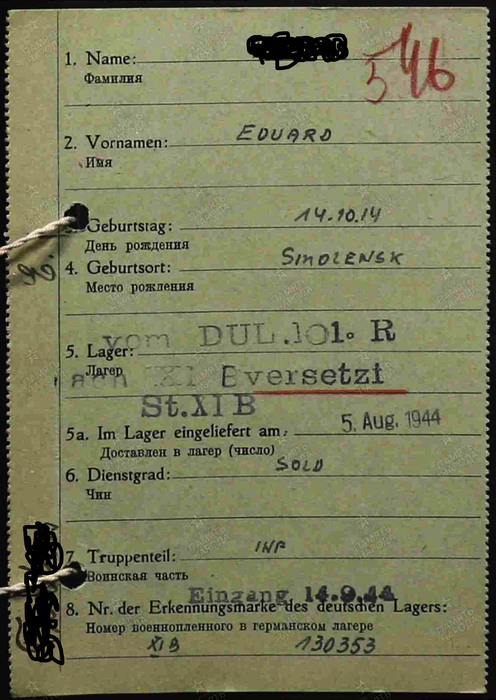 546
1. Name:
Фамилия
2. Vornamen: EDUARD
Имя
3. Geburtstag: 14.10.14
День рождения
4. Geburtsort: SMOLENSK
Место рождения
vom DUL.101. R
5. Lager:
Лагер
nach XI B versetzt
St.XI B
5a. Im Lager eingeliefert am: 5. Aug. 1944
Доставлен в лагер (число)
6. Dienstgrad: SOLD
Чин
7. Truppenteil: INF
Воинская часть
Eingang 14.9.44
8. Nr. der Erkennungsmarke des deutschen Lagers:
Номер военнопленного в германском лагере
XI B 130353